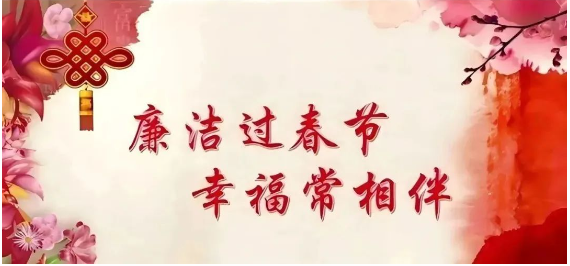 廉洁过春节
幸福常相伴